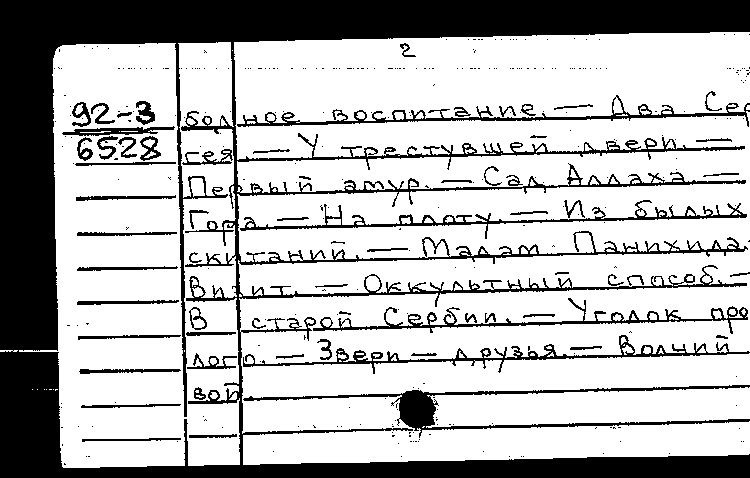 2
92-3
6528
бодное воспитание. — Два Сер
гея. — У трестувшей двери. —
Первый амур. — Сад Аллаха. —
Гора. — На плоту. — Из былых
скитаний. — Мадам Панихида.
Визит. — Оккультный способ. —
В старой Сербии. — Уголок про
лого. — Звери — друзья. — Волчий
вой.